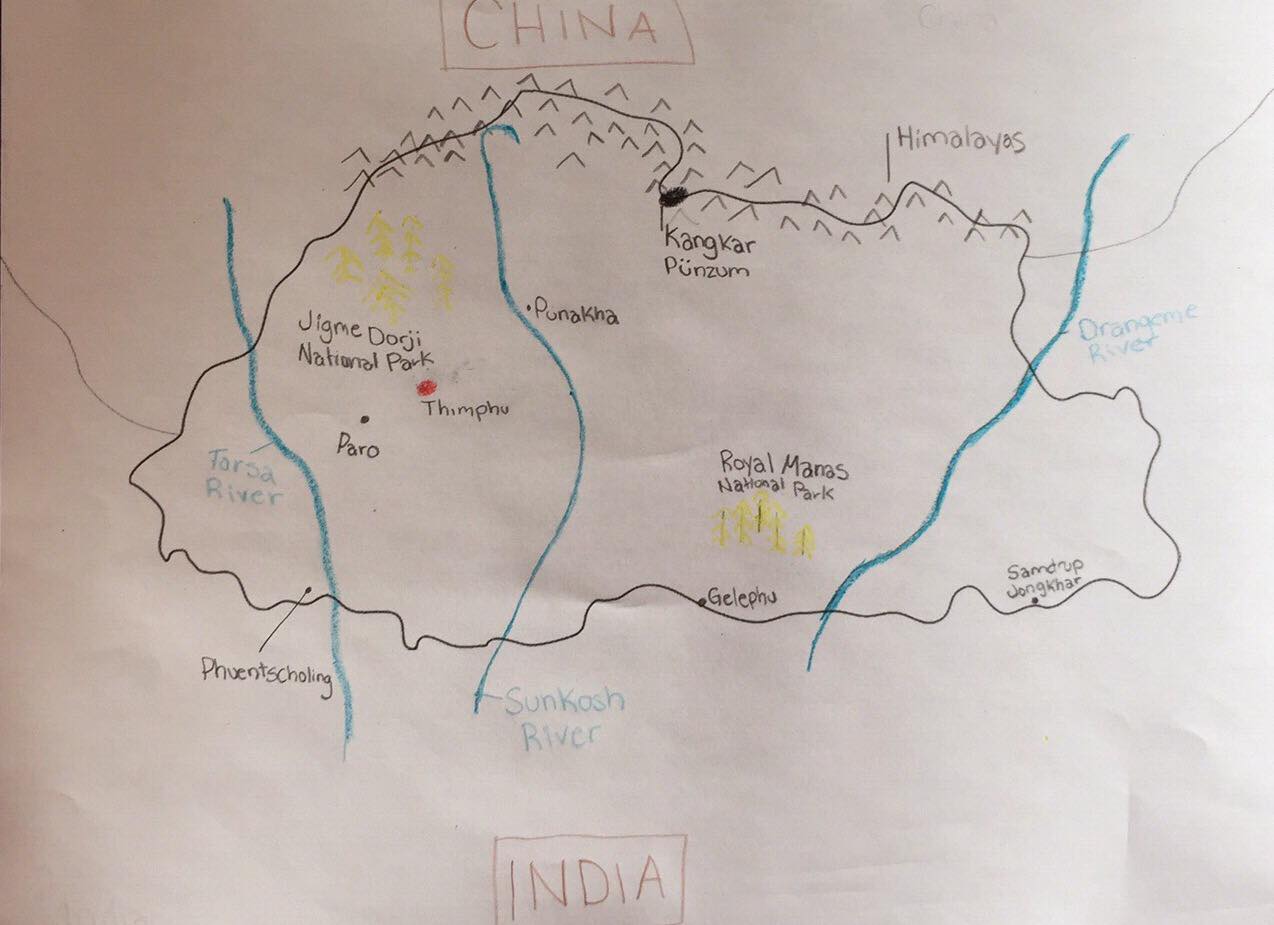 CHINA
China
Himalayas
Kangkar
Pünzum
Punakha
Drangeme
River
Jigme Dorji
National Park
Thimphu
Paro
Torsa
River
Royal Manas
National Park
Samdrup
Jongkhar
Gelephu
Phuentscholing
Sunkosh
River
INDIA
India